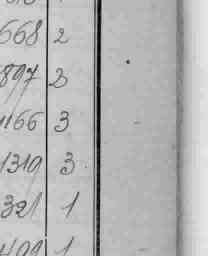 668 2
897 2
1166 3
1319 3
321 1
499 1